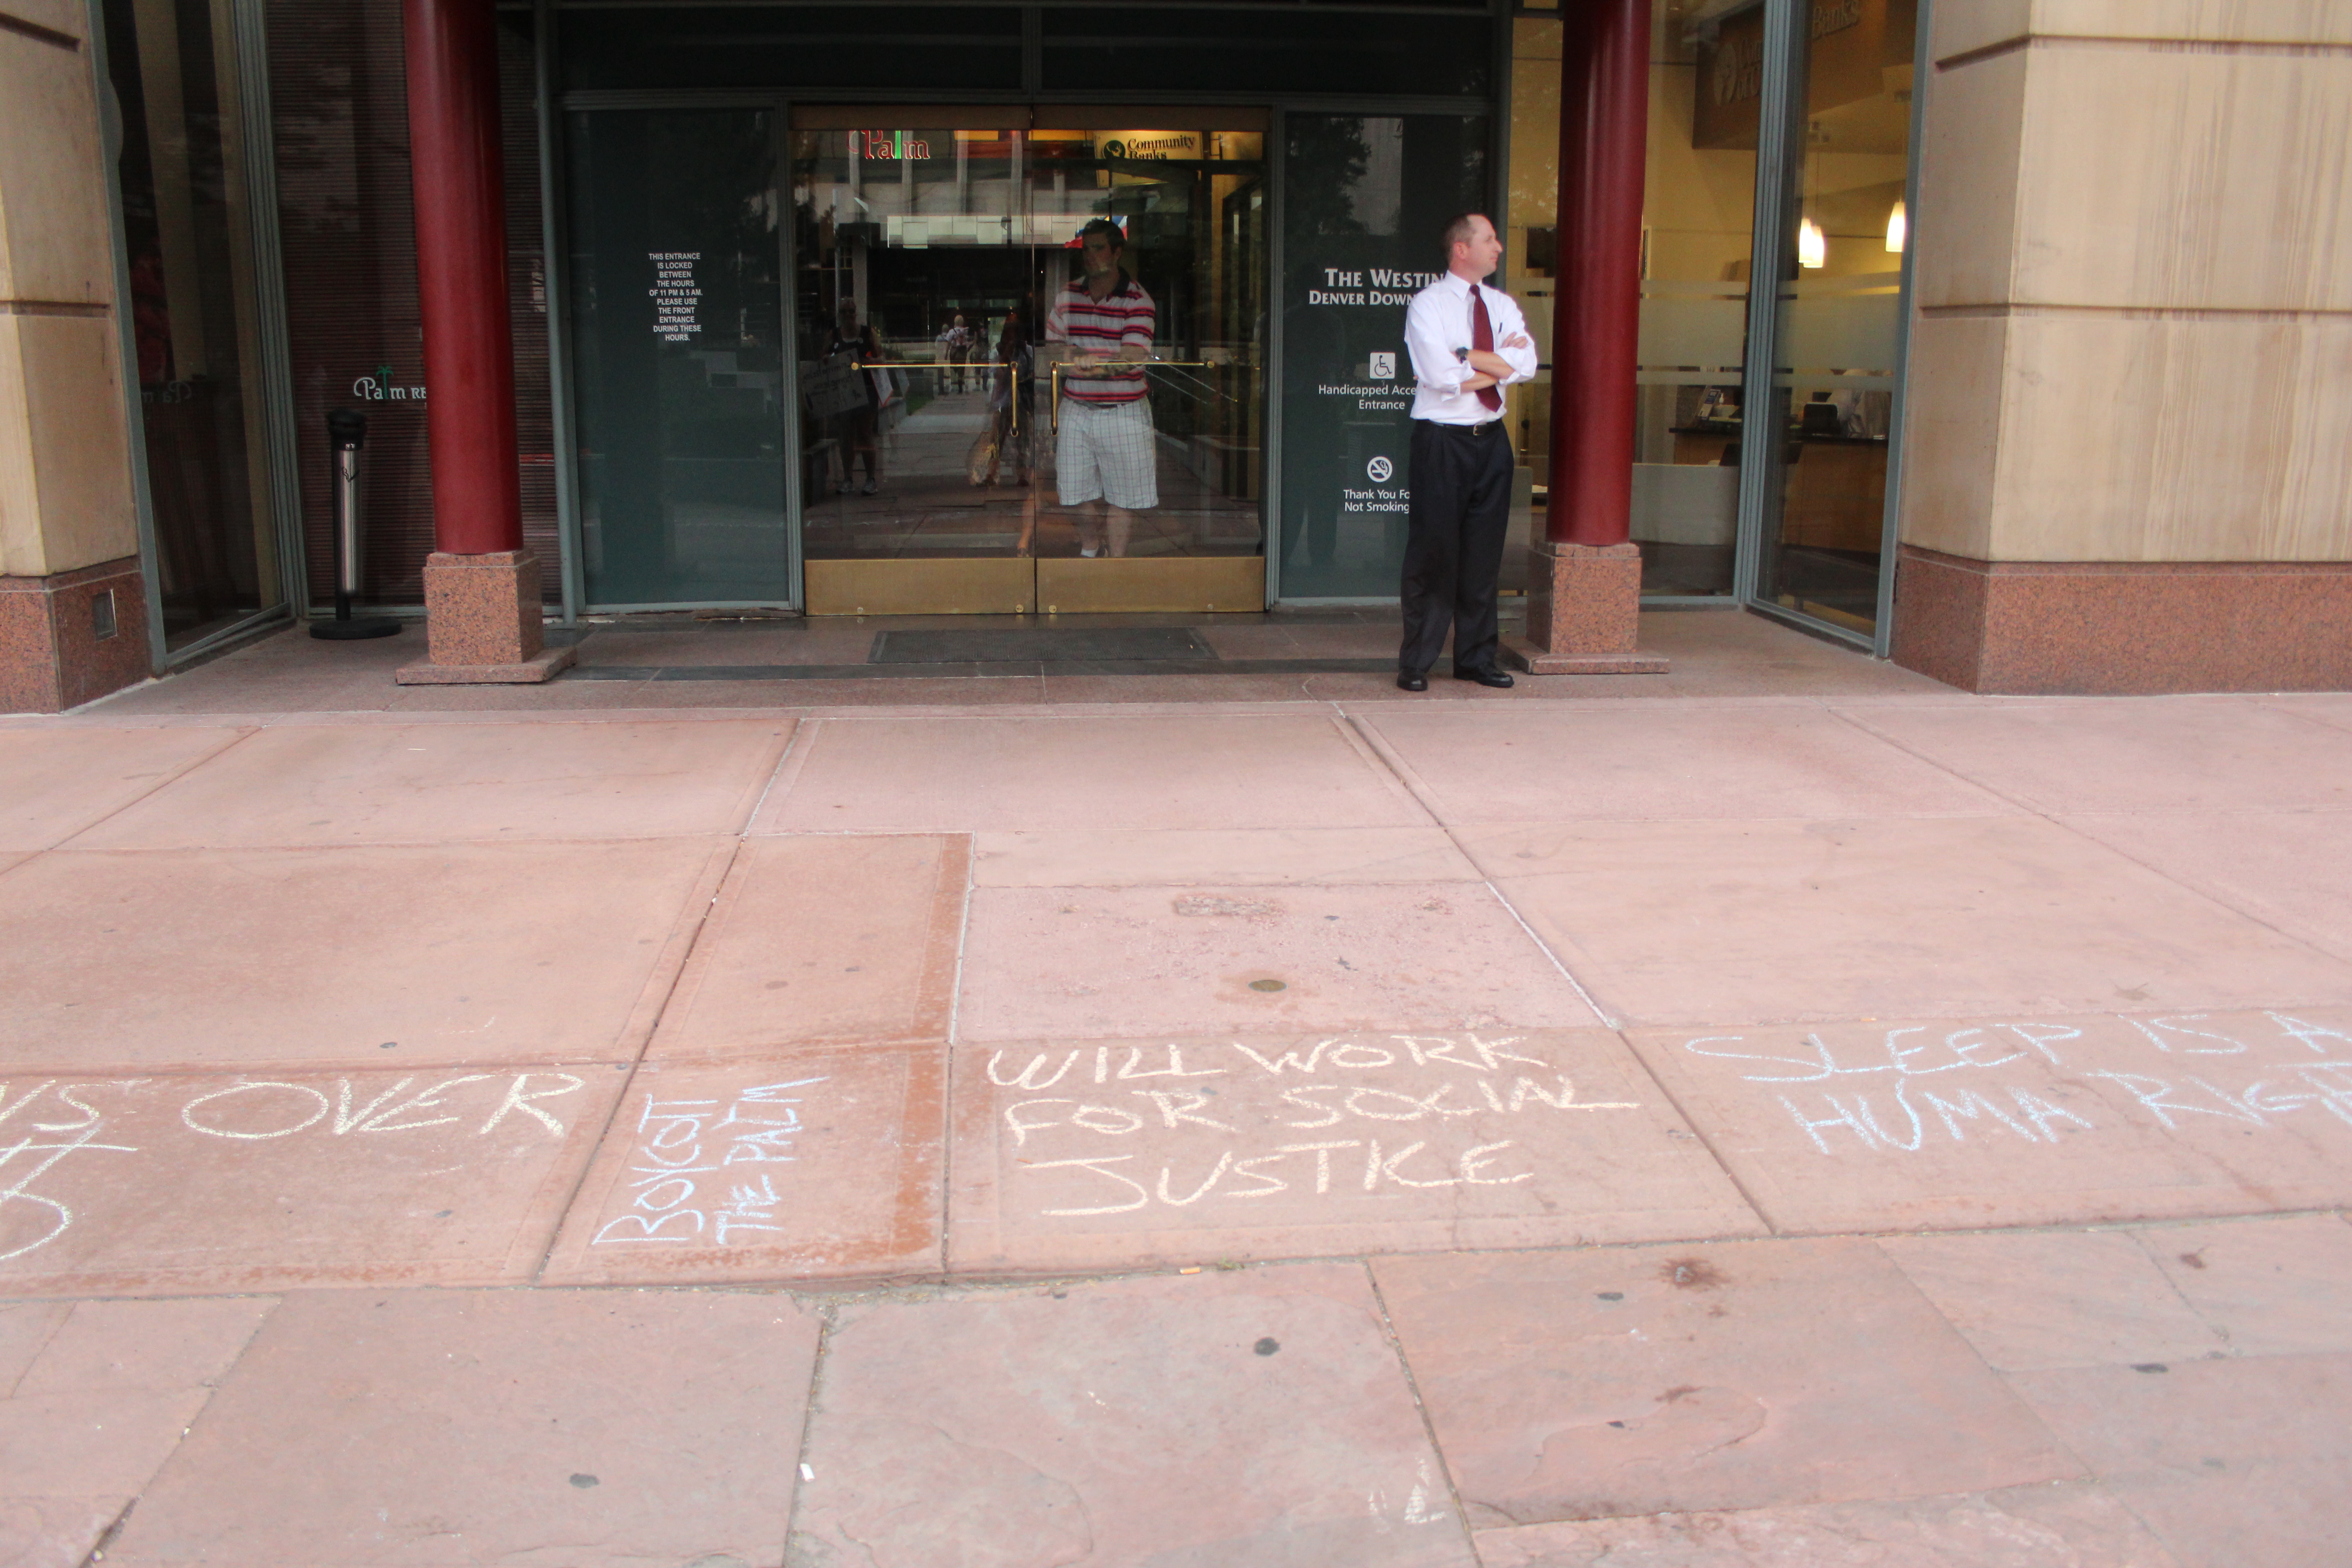 Palm
Community
Banks
Banks
THIS ENTRANCE
IS LOCKED
BETWEEN
THE HOURS
OF 11 PM & 5 AM.
PLEASE USE
THE FRONT
ENTRANCE
DURING THESE
HOURS.
THE WESTIN
DENVER DOWN
Palm RE
Handicapped Acce
Entrance
Thank You Fo
Not Smoking
NS OVER
BOYCOTT
THE PALM
WILL WORK
FOR SOCIAL
JUSTICE
SLEEP IS A
HUMA RIGH